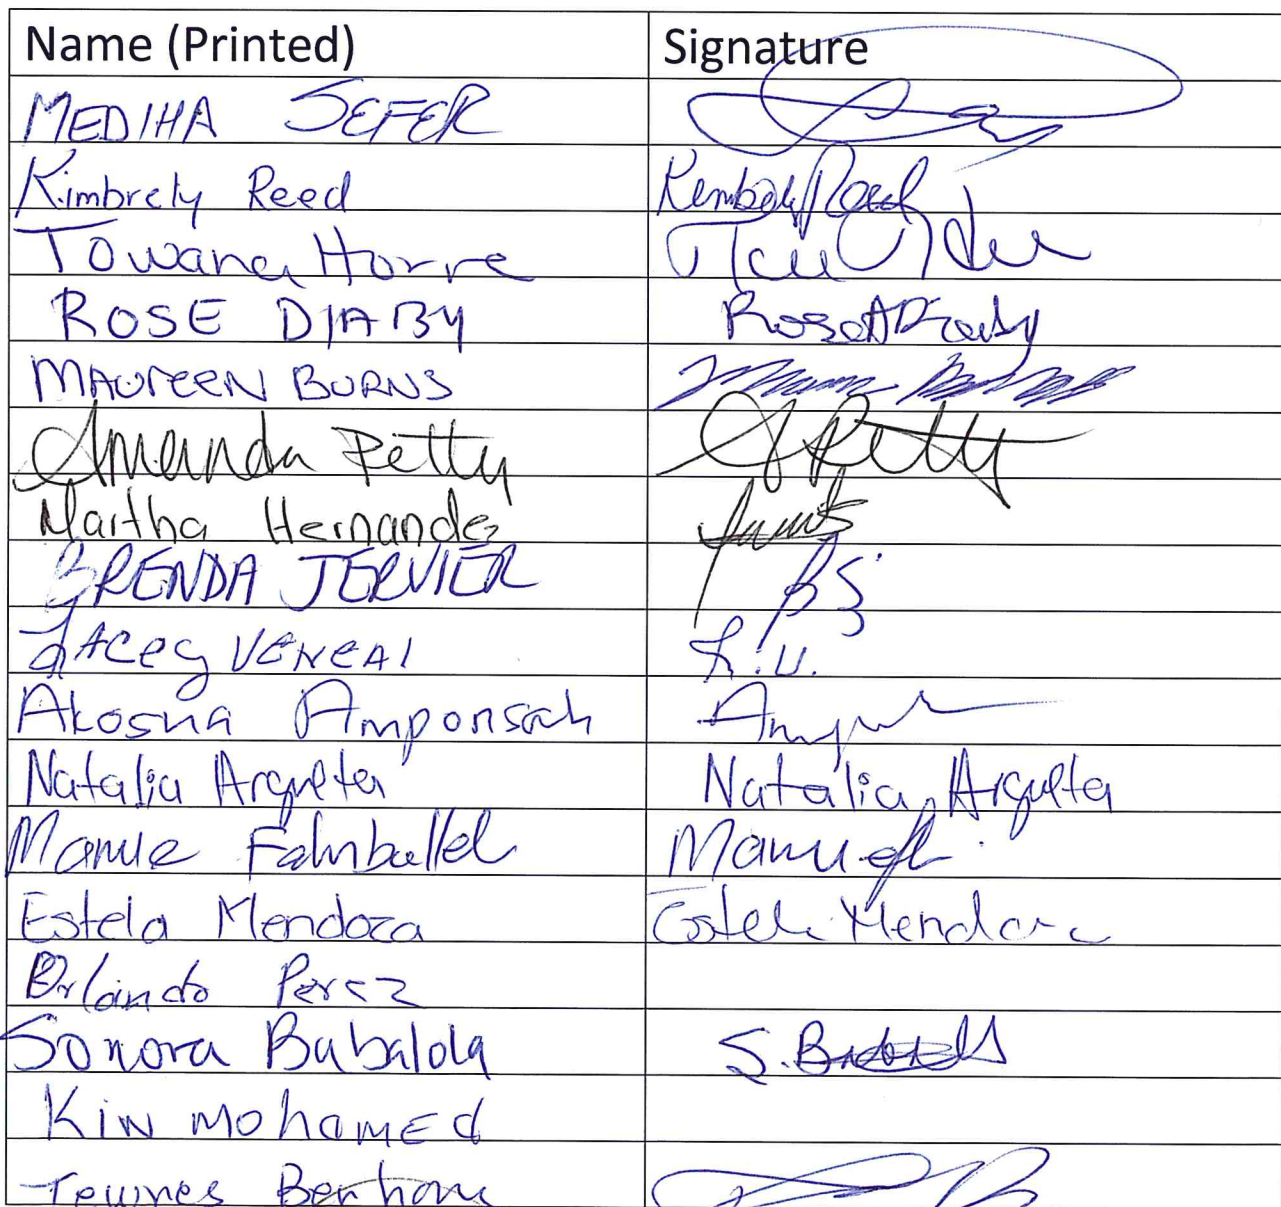 Name (Printed) Signature
MEDIHA SEFER
Kimbrely Reed Kimbrely Reed
Towana Horre
ROSE DIABY Rose A Diaby
MAUREEN BURNS
Amanda Petty A Petty
Martha Hernandez
BRENDA JERVIER BJ
LACEY VENEAL L.V.
Akosua Amponsah
Natalia Argueta Natalia Argueta
Mamie Fahnbulleh
Estela Mendoza Estela Mendoza
Orlando Perez
Sonora Babalola S.
Kin Mohamed
Berhane